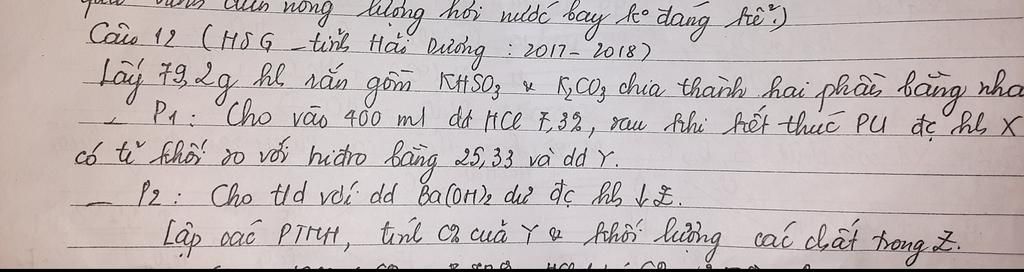 quá trình cân nóng lượng hơi nước bay k° đáng kể.)
Câu 12 (HSG - tỉnh Hải Dương : 2017 - 2018)
Lấy 79,2g hh rắn gồm KHSO3 & K2CO3 chia thành hai phần bằng nha
- P1 : Cho vào 400 ml dd HCl 7,3%, sau khi kết thúc PU đc hh X
có tỉ khối so với hiđro bằng 25,33 và dd Y.
- P2 : Cho t/d với dd Ba(OH)2 dư đc hh ↓ Z.
Lập các PTHH, tính C% của Y & khối lượng các chất trong Z.